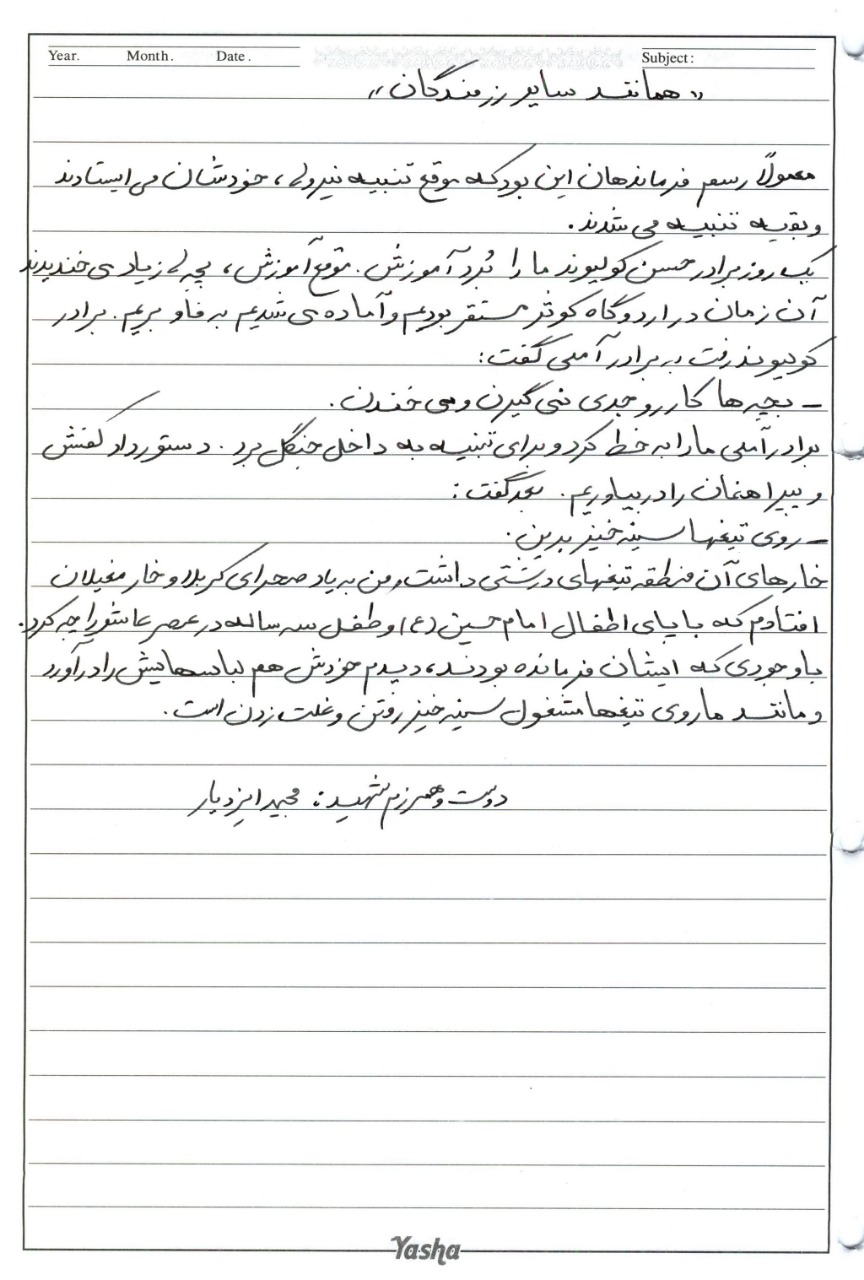 Year. Month. Date. Subject:
«همانند سایر رزمندگان»
معمولاً رسم فرماندهان این بود که موقع تنبیه نیروها، خودشان می ایستادند
و بقیه تنبیه می شدند.
یک روز برادر حسن کولیوند ما را بُرد آموزش. موقع آموزش، بچه ها زیاد می خندیدند
آن زمان در اردوگاه کوثر مستقر بودیم و آماده می شدیم به فاو بریم. برادر
کولیوند رفت به برادر آملی گفت:
- بچه ها کار رو جدی نمی گیرن و می خندن.
برادر آملی ما را به خط کرد و برای تنبیه به داخل جنگل برد. دستور داد کفش
و پیراهنمان را در بیاوریم. بعد گفت:
- روی تیغها سینه خیز برین.
خارهای آن منطقه تیغهای درشتی داشت و من به یاد صحرای کربلا و خار مغیلان
افتادم که با پای اطفال امام حسین (ع) و طفل سه ساله در عصر عاشورا چه کرد.
با وجودی که ایشان فرمانده بودند، دیدم خودش هم لباسهایش را درآورد
و مانند ما روی تیغها مشغول سینه خیز رفتن و غلت زدن است.
دوست و همرزم شهید: مجید ایزدیار
Yasha